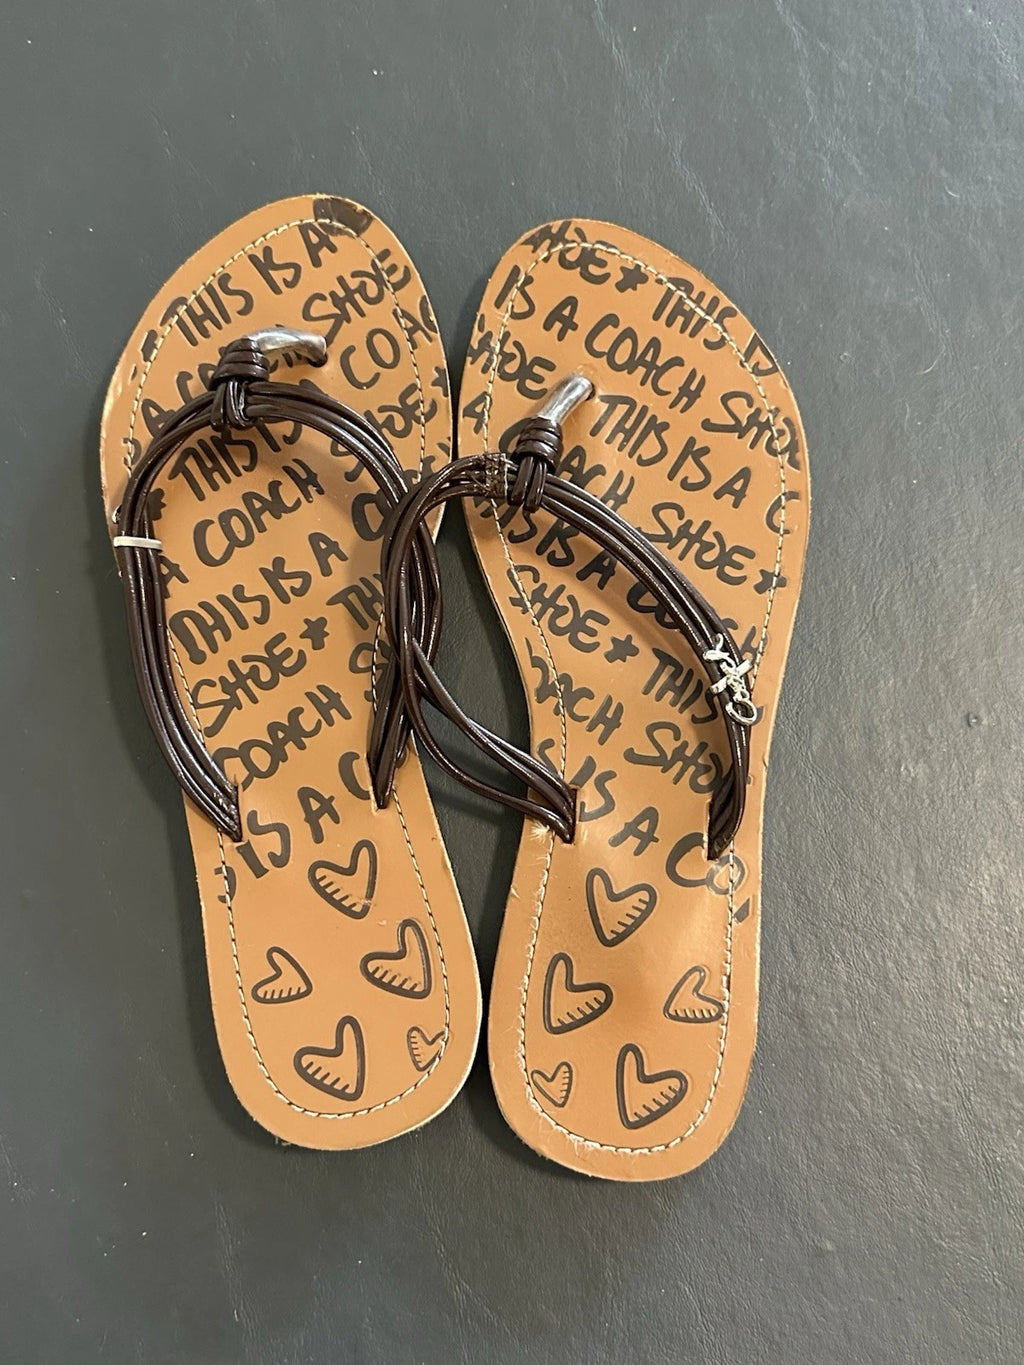 THIS IS A
SHOE
A COACH
THIS IS A COACH
SHOE *
* THIS IS
SHOE *
A COACH
THIS IS A CO
SHOE * THIS
COACH SH
IS A C
SHOE * THIS IS
IS A COACH SHOE
SHOE * THIS IS A C
A COACH SHOE *
THIS IS A COACH
SHOE * THIS
COACH SHOE
IS A CO